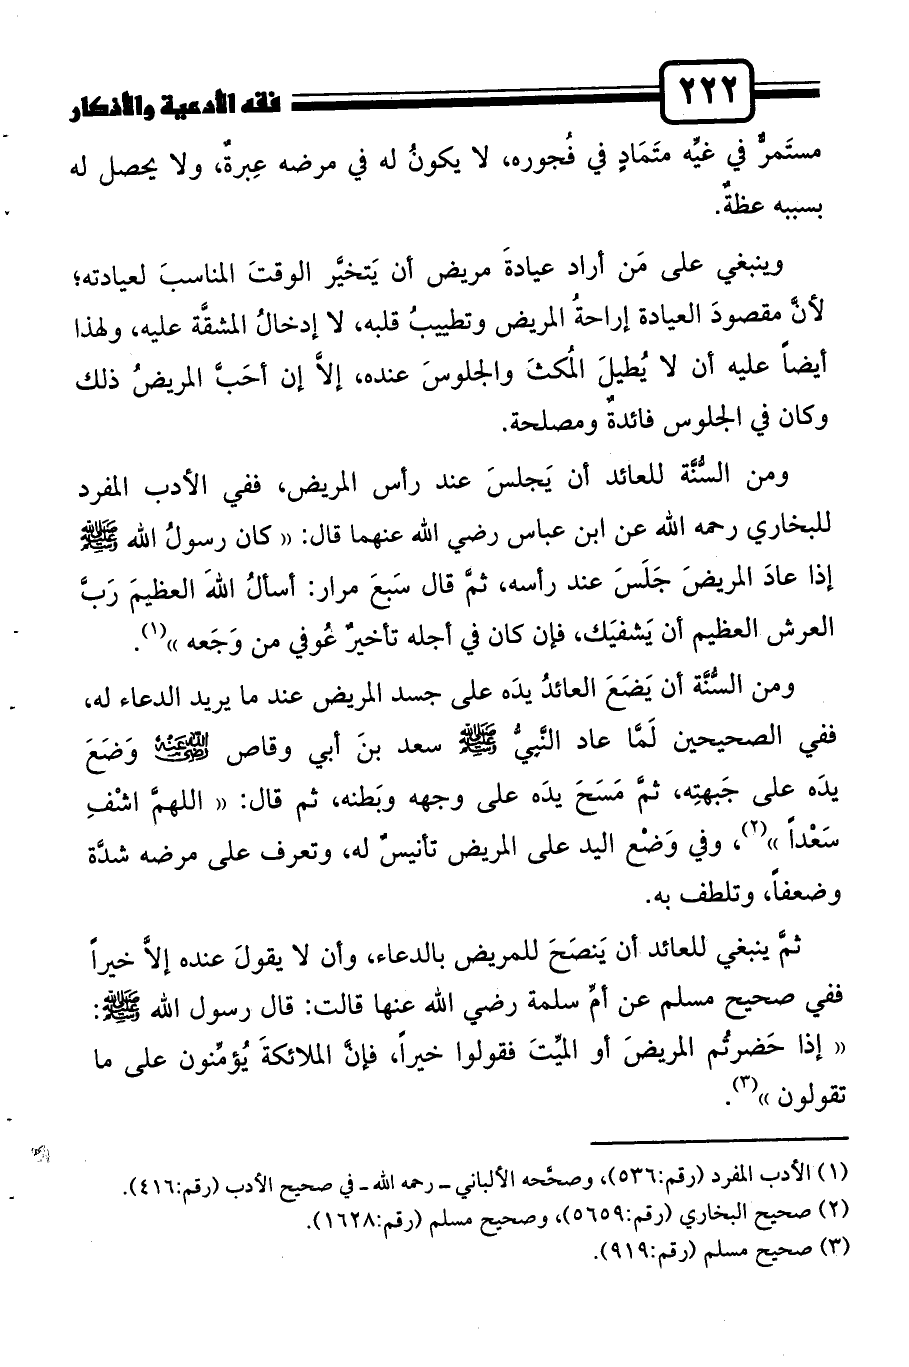 ٢٢٢
فقه الأدعية والأذكار
مستَمرٌّ في غيِّه متَمَادٍ في فُجوره، لا يكونُ له في مرضه عِبرةٌ، ولا يحصل له
بسببه عظةٌ.
وينبغي على مَن أراد عيادةَ مريض أن يَتخيَّر الوقتَ المناسبَ لعيادته؛
لأنَّ مقصودَ العيادة إراحةُ المريض وتطييبُ قلبه، لا إدخالُ المشقَّة عليه، ولهذا
أيضاً عليه أن لا يُطيلَ المُكثَ والجلوسَ عنده، إلاَّ إن أحَبَّ المريضُ ذلك
وكان في الجلوس فائدةٌ ومصلحة.
ومن السُّنَّة للعائد أن يَجلسَ عند رأس المريض، ففي الأدب المفرد
للبخاري رحمه الله عن ابن عباس رضي الله عنهما قال: « كان رسولُ الله ﷺ
إذا عادَ المريضَ جَلَسَ عند رأسه، ثمَّ قال سَبعَ مرار: أسألُ اللهَ العظيمَ رَبَّ
العرش العظيم أن يَشفيَك، فإن كان في أجله تأخيرٌ عُوفي من وَجَعه »(١).
ومن السُّنَّة أن يَضَعَ العائدُ يدَه على جسد المريض عند ما يريد الدعاء له،
ففي الصحيحين لَمَّا عاد النَّبِيُّ ﷺ سعد بنَ أبي وقاص رضي الله عنه وَضَعَ
يدَه على جَبهتِه، ثمَّ مَسَحَ يدَه على وجهه وبَطنه، ثم قال: « اللهمَّ اشْفِ
سَعْداً »(٢)، وفي وَضْع اليد على المريض تأنيسٌ له، وتعرف على مرضه شدَّة
وضعفاً، وتلطف به.
ثمَّ ينبغي للعائد أن يَنصَحَ للمريض بالدعاء، وأن لا يقولَ عنده إلاَّ خيراً
ففي صحيح مسلم عن أمِّ سلمة رضي الله عنها قالت: قال رسول الله ﷺ:
« إذا حَضرتُم المريضَ أو الميِّتَ فقولوا خيراً، فإنَّ الملائكةَ يُؤمِّنون على ما
تقولون »(٣).
(١) الأدب المفرد (رقم:٥٣٦)، وصحَّحه الألباني ـ رحمه الله ـ في صحيح الأدب (رقم:٤١٦).
(٢) صحيح البخاري (رقم:٥٦٥٩)، وصحيح مسلم (رقم:١٦٢٨).
(٣) صحيح مسلم (رقم:٩١٩).